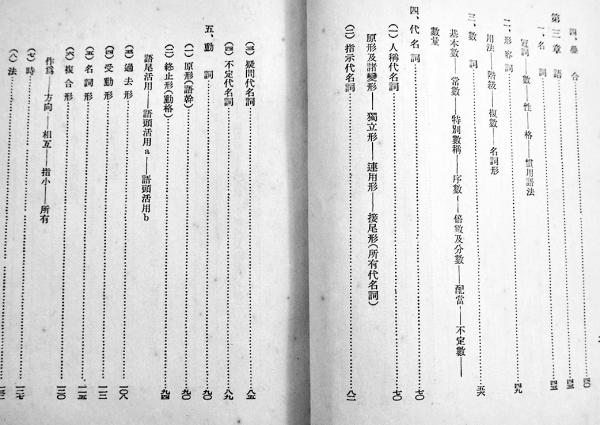 四、疊合……………四〇
第三章 語……………四三
一、名詞……………四三
冠詞——數——性——格——慣用語法
二、形容詞……………四九
用法——階級——複數——名詞形
三、數詞……………五六
基本數——常數——特別數稱——序數——倍數及分數——配當——不定數——
數量
四、代名詞……………七〇
(一)人稱代名詞……………七〇
原形及諸變形——獨立形——連用形——接尾形(所有代名詞)
(二)指示代名詞……………八二
(三)疑問代名詞……………八六
(四)不定代名詞……………八九
五、動詞……………九〇
(一)原形(語幹)……………九〇
(二)終止形(動格)……………九四
語尾活用——語頭活用a——語頭活用b
(三)過去形……………一〇八
(四)受動形……………一一三
(五)名詞形……………一一五
(六)複合形……………一二〇
作爲——方向——相互——指小——所有
(七)時……………一二七
(八)法……………